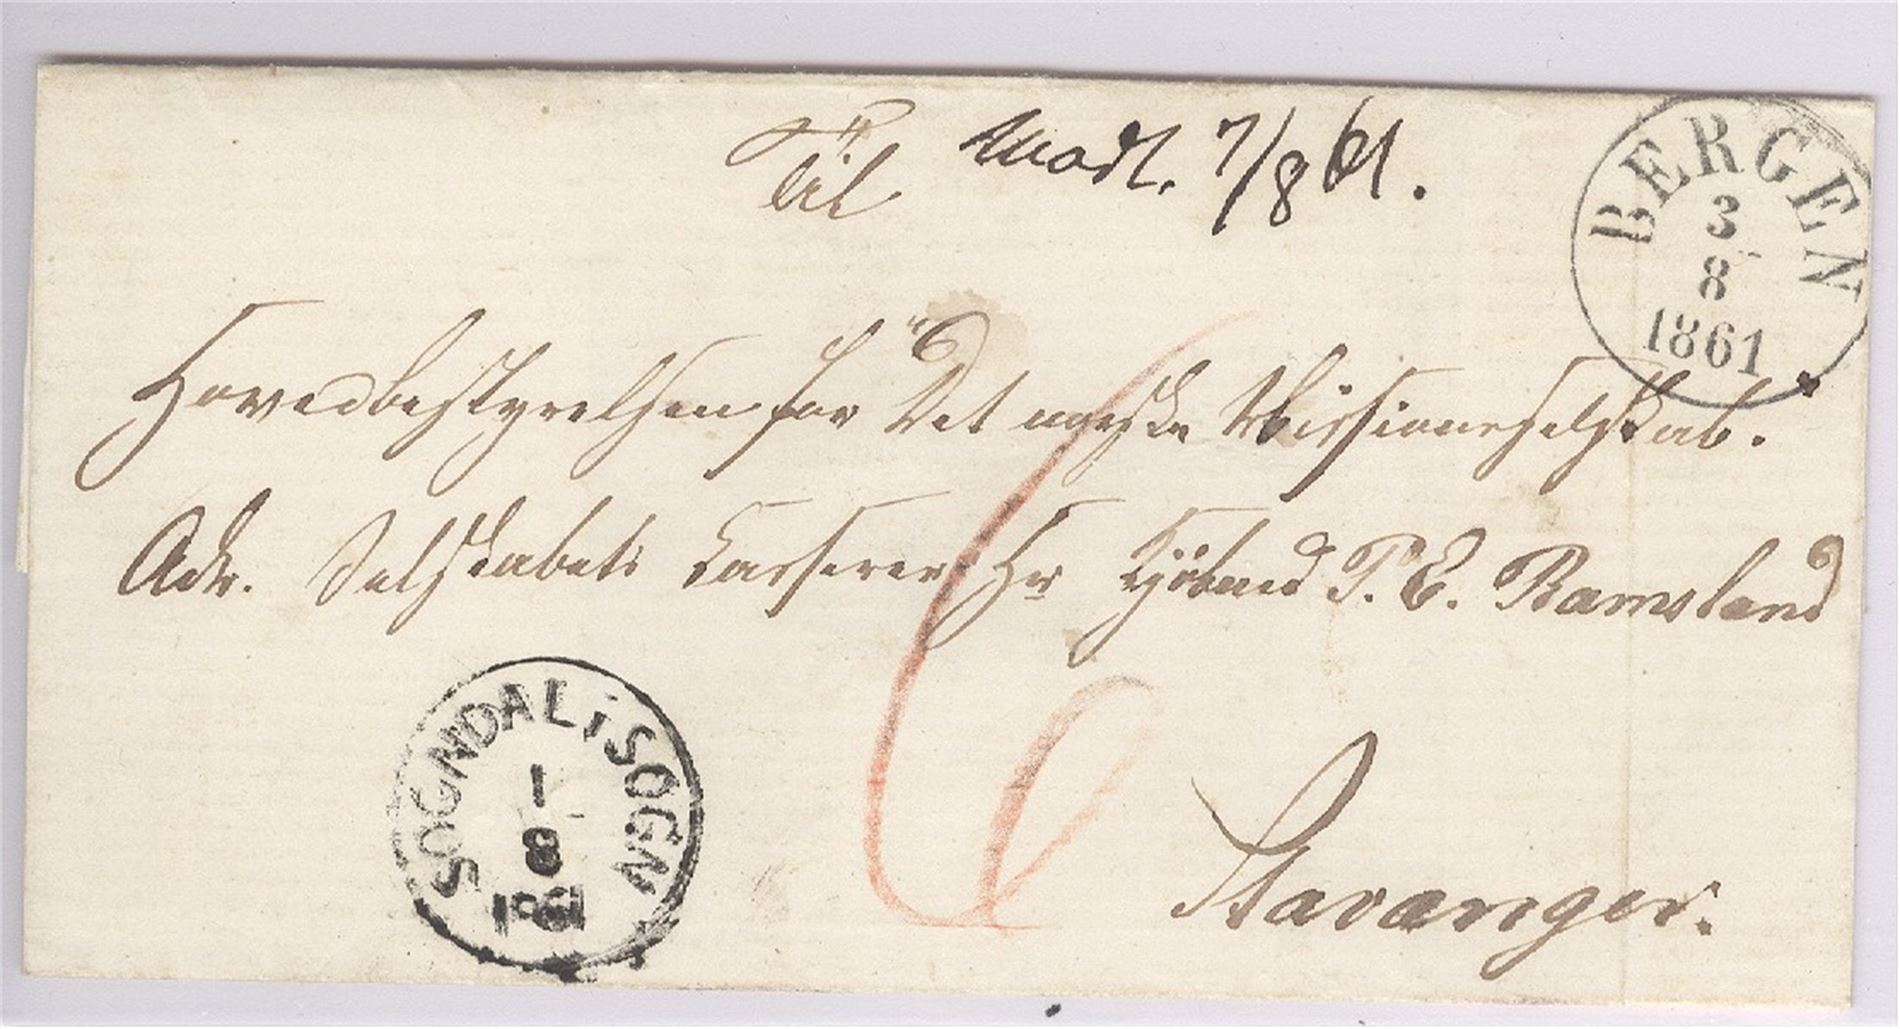 Til
Modt. 7/8 61.
BERGEN
3
8
1861
Hovedbestyrelsen for Det norske Missionsselskab.
Adr. Selskabets Casserer Hr Kjöbmd P. E. Ramsland
6
SOGNDAL i SOGN
1
8
1861
Stavanger.